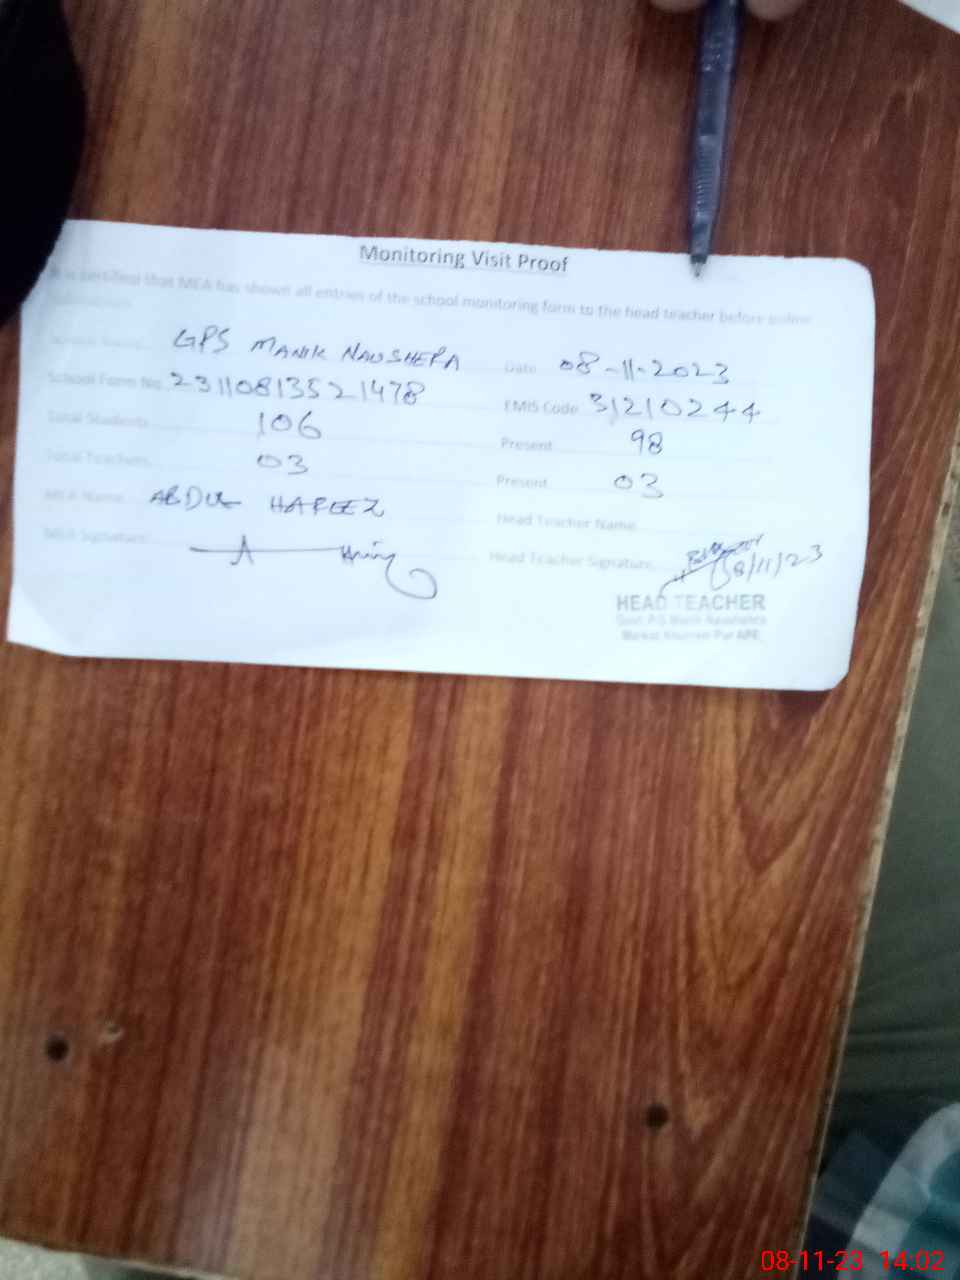 Monitoring Visit Proof
It is certified that MEA has shown all entries of the school monitoring form to the head teacher before online
GPS MANIK NAUSHERA Date 08-11-2023
School Form No. 2311081352 1478 EMIS Code 31210244
Total Students 106 Present 98
Total Teachers 03 Present 03
MEA Name ABDUL HAFEEZ Head Teacher Name
MEA Signature Head Teacher Signature 08/11/23
HEAD TEACHER
Govt P/S Manik
APE
08-11-23 14:02